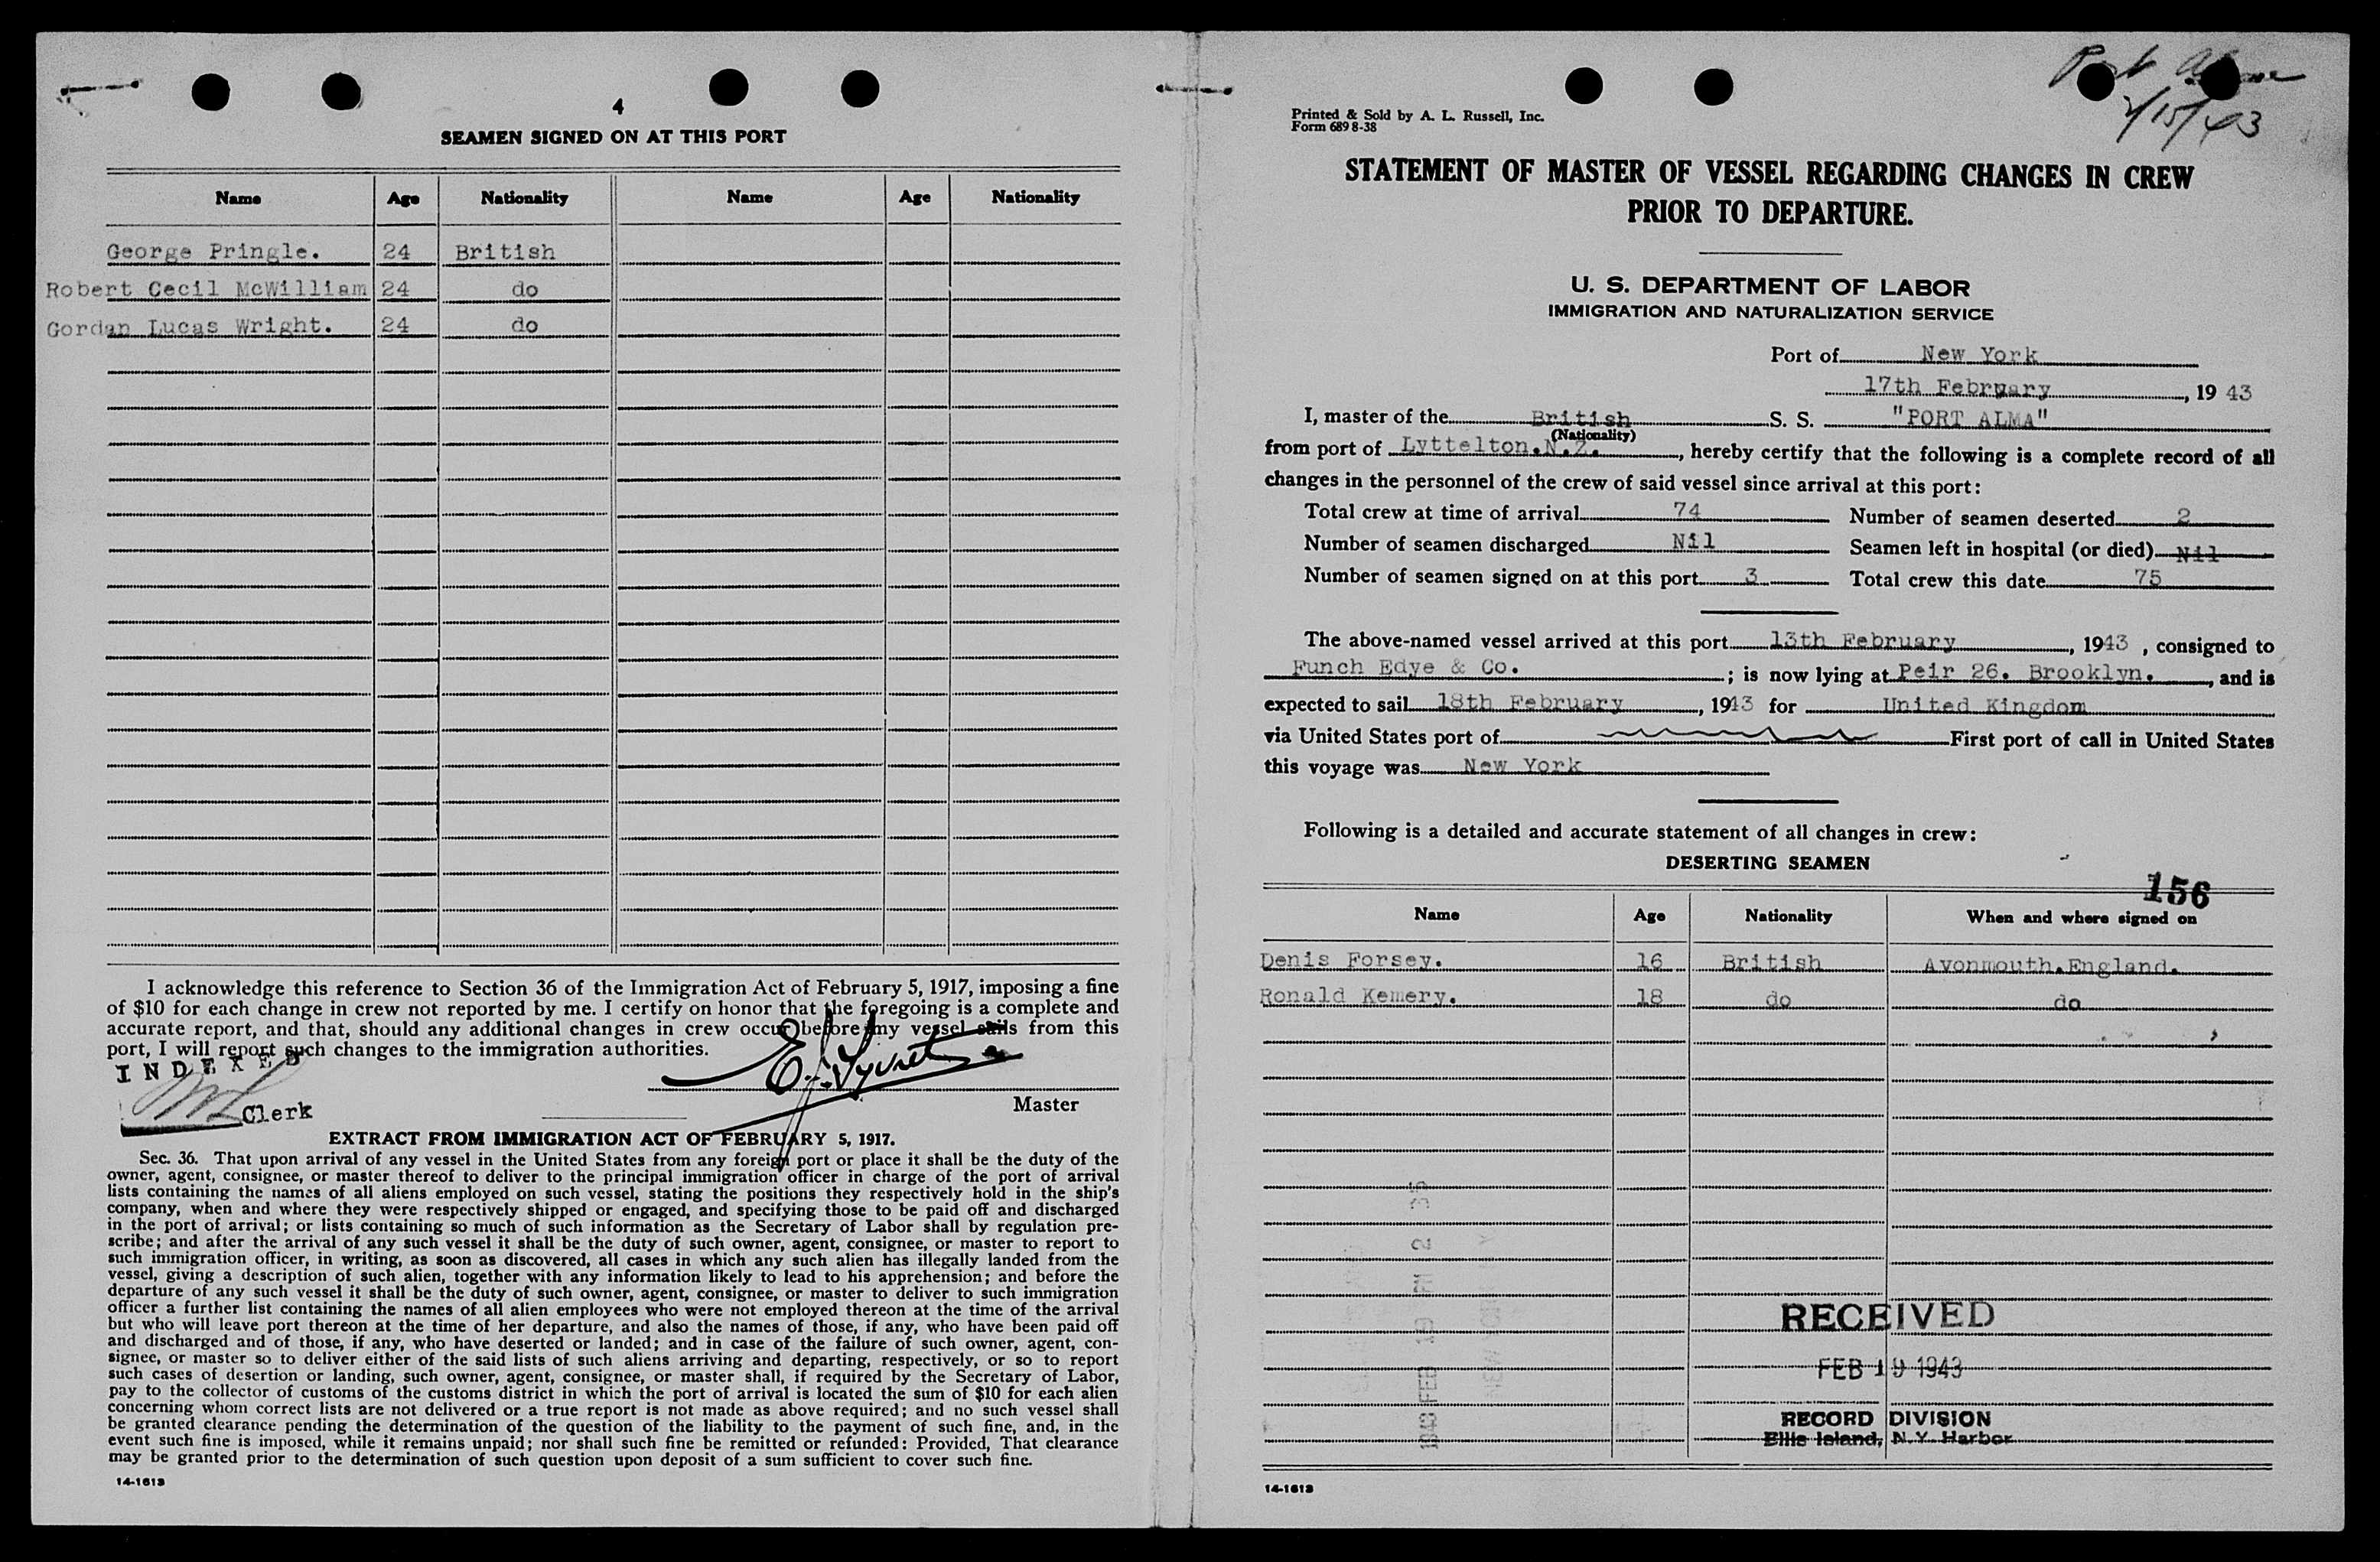 4
SEAMEN SIGNED ON AT THIS PORT
Name Age Nationality Name Age Nationality
George Pringle. 24 British
Robert Cecil McWilliam 24 do
Gordan Lucas Wright. 24 do
I acknowledge this reference to Section 36 of the Immigration Act of February 5, 1917, imposing a fine
of $10 for each change in crew not reported by me. I certify on honor that the foregoing is a complete and
accurate report, and that, should any additional changes in crew occur before my vessel sails from this
port, I will report such changes to the immigration authorities.
INDEXED
Clerk
Master
EXTRACT FROM IMMIGRATION ACT OF FEBRUARY 5, 1917.
Sec. 36. That upon arrival of any vessel in the United States from any foreign port or place it shall be the duty of the
owner, agent, consignee, or master thereof to deliver to the principal immigration officer in charge of the port of arrival
lists containing the names of all aliens employed on such vessel, stating the positions they respectively hold in the ship's
company, when and where they were respectively shipped or engaged, and specifying those to be paid off and discharged
in the port of arrival; or lists containing so much of such information as the Secretary of Labor shall by regulation pre-
scribe; and after the arrival of any such vessel it shall be the duty of such owner, agent, consignee, or master to report to
such immigration officer, in writing, as soon as discovered, all cases in which any such alien has illegally landed from the
vessel, giving a description of such alien, together with any information likely to lead to his apprehension; and before the
departure of any such vessel it shall be the duty of such owner, agent, consignee, or master to deliver to such immigration
officer a further list containing the names of all alien employees who were not employed thereon at the time of the arrival
but who will leave port thereon at the time of her departure, and also the names of those, if any, who have been paid off
and discharged and of those, if any, who have deserted or landed; and in case of the failure of such owner, agent, con-
signee, or master so to deliver either of the said lists of such aliens arriving and departing, respectively, or so to report
such cases of desertion or landing, such owner, agent, consignee, or master shall, if required by the Secretary of Labor,
pay to the collector of customs of the customs district in which the port of arrival is located the sum of $10 for each alien
concerning whom correct lists are not delivered or a true report is not made as above required; and no such vessel shall
be granted clearance pending the determination of the question of the liability to the payment of such fine, and, in the
event such fine is imposed, while it remains unpaid; nor shall such fine be remitted or refunded: Provided, That clearance
may be granted prior to the determination of such question upon deposit of a sum sufficient to cover such fine.
14-1613
2/15/43
Printed & Sold by A. L. Russell, Inc.
Form 689 8-38
STATEMENT OF MASTER OF VESSEL REGARDING CHANGES IN CREW
PRIOR TO DEPARTURE.
U. S. DEPARTMENT OF LABOR
IMMIGRATION AND NATURALIZATION SERVICE
Port of New York
17th February, 19 43
I, master of the British S. S. "PORT ALMA"
(Nationality)
from port of Lyttelton.N.Z., hereby certify that the following is a complete record of all
changes in the personnel of the crew of said vessel since arrival at this port:
Total crew at time of arrival 74 Number of seamen deserted 2
Number of seamen discharged Nil Seamen left in hospital (or died) Nil
Number of seamen signed on at this port 3 Total crew this date 75
The above-named vessel arrived at this port 13th February, 1943, consigned to
Funch Edye & Co.; is now lying at Peir 26. Brooklyn., and is
expected to sail 18th February, 1943 for United Kingdom
via United States port of First port of call in United States
this voyage was New York
Following is a detailed and accurate statement of all changes in crew:
DESERTING SEAMEN
156
Name Age Nationality When and where signed on
Denis Forsey. 16 British Avonmouth.England.
Ronald Kemery. 18 do do
RECEIVED
FEB 19 1943
RECORD DIVISION
Ellis Island, N.Y. Harbor
1943 FEB 19 M 2 35
14-1613